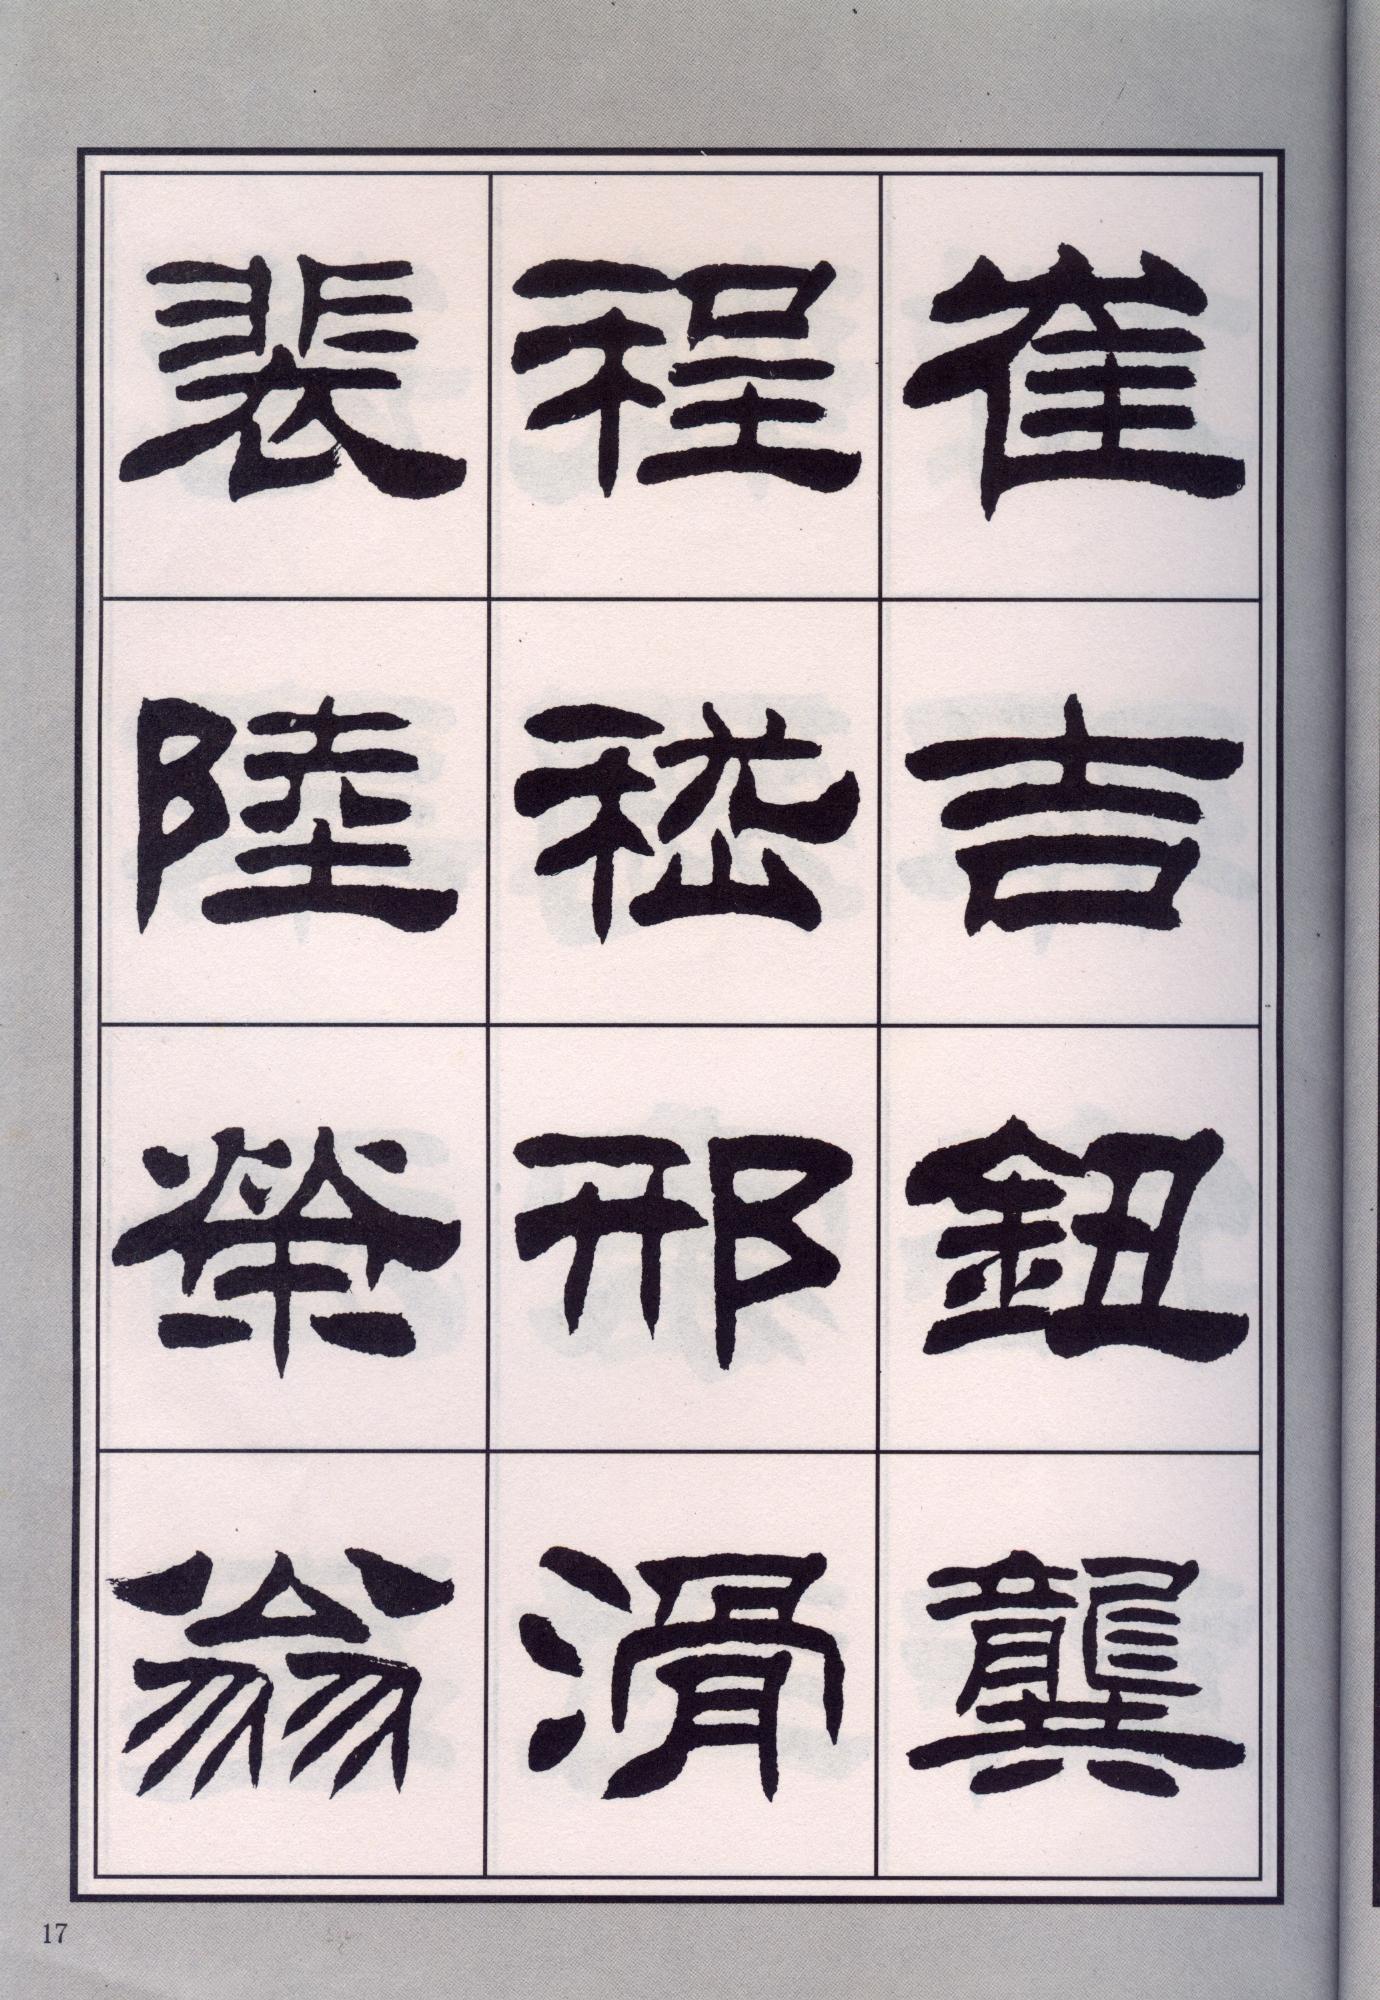 崔吉鈕龔
程嵇邢滑
裴陸榮翁
17